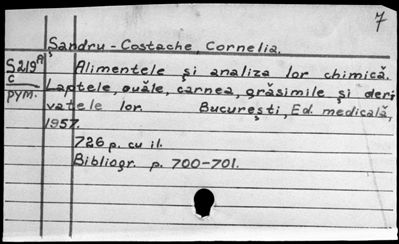 7
Şandru-Costache, Cornelia.
S219A Alimentele şi analiza lor chimică.
C Laptele, ouăle, carnea, grăsimile şi deri
pym. vatele lor. Bucureşti, Ed. medicală,
1957.
726 p. cu il.
Bibliogr. p. 700-701.